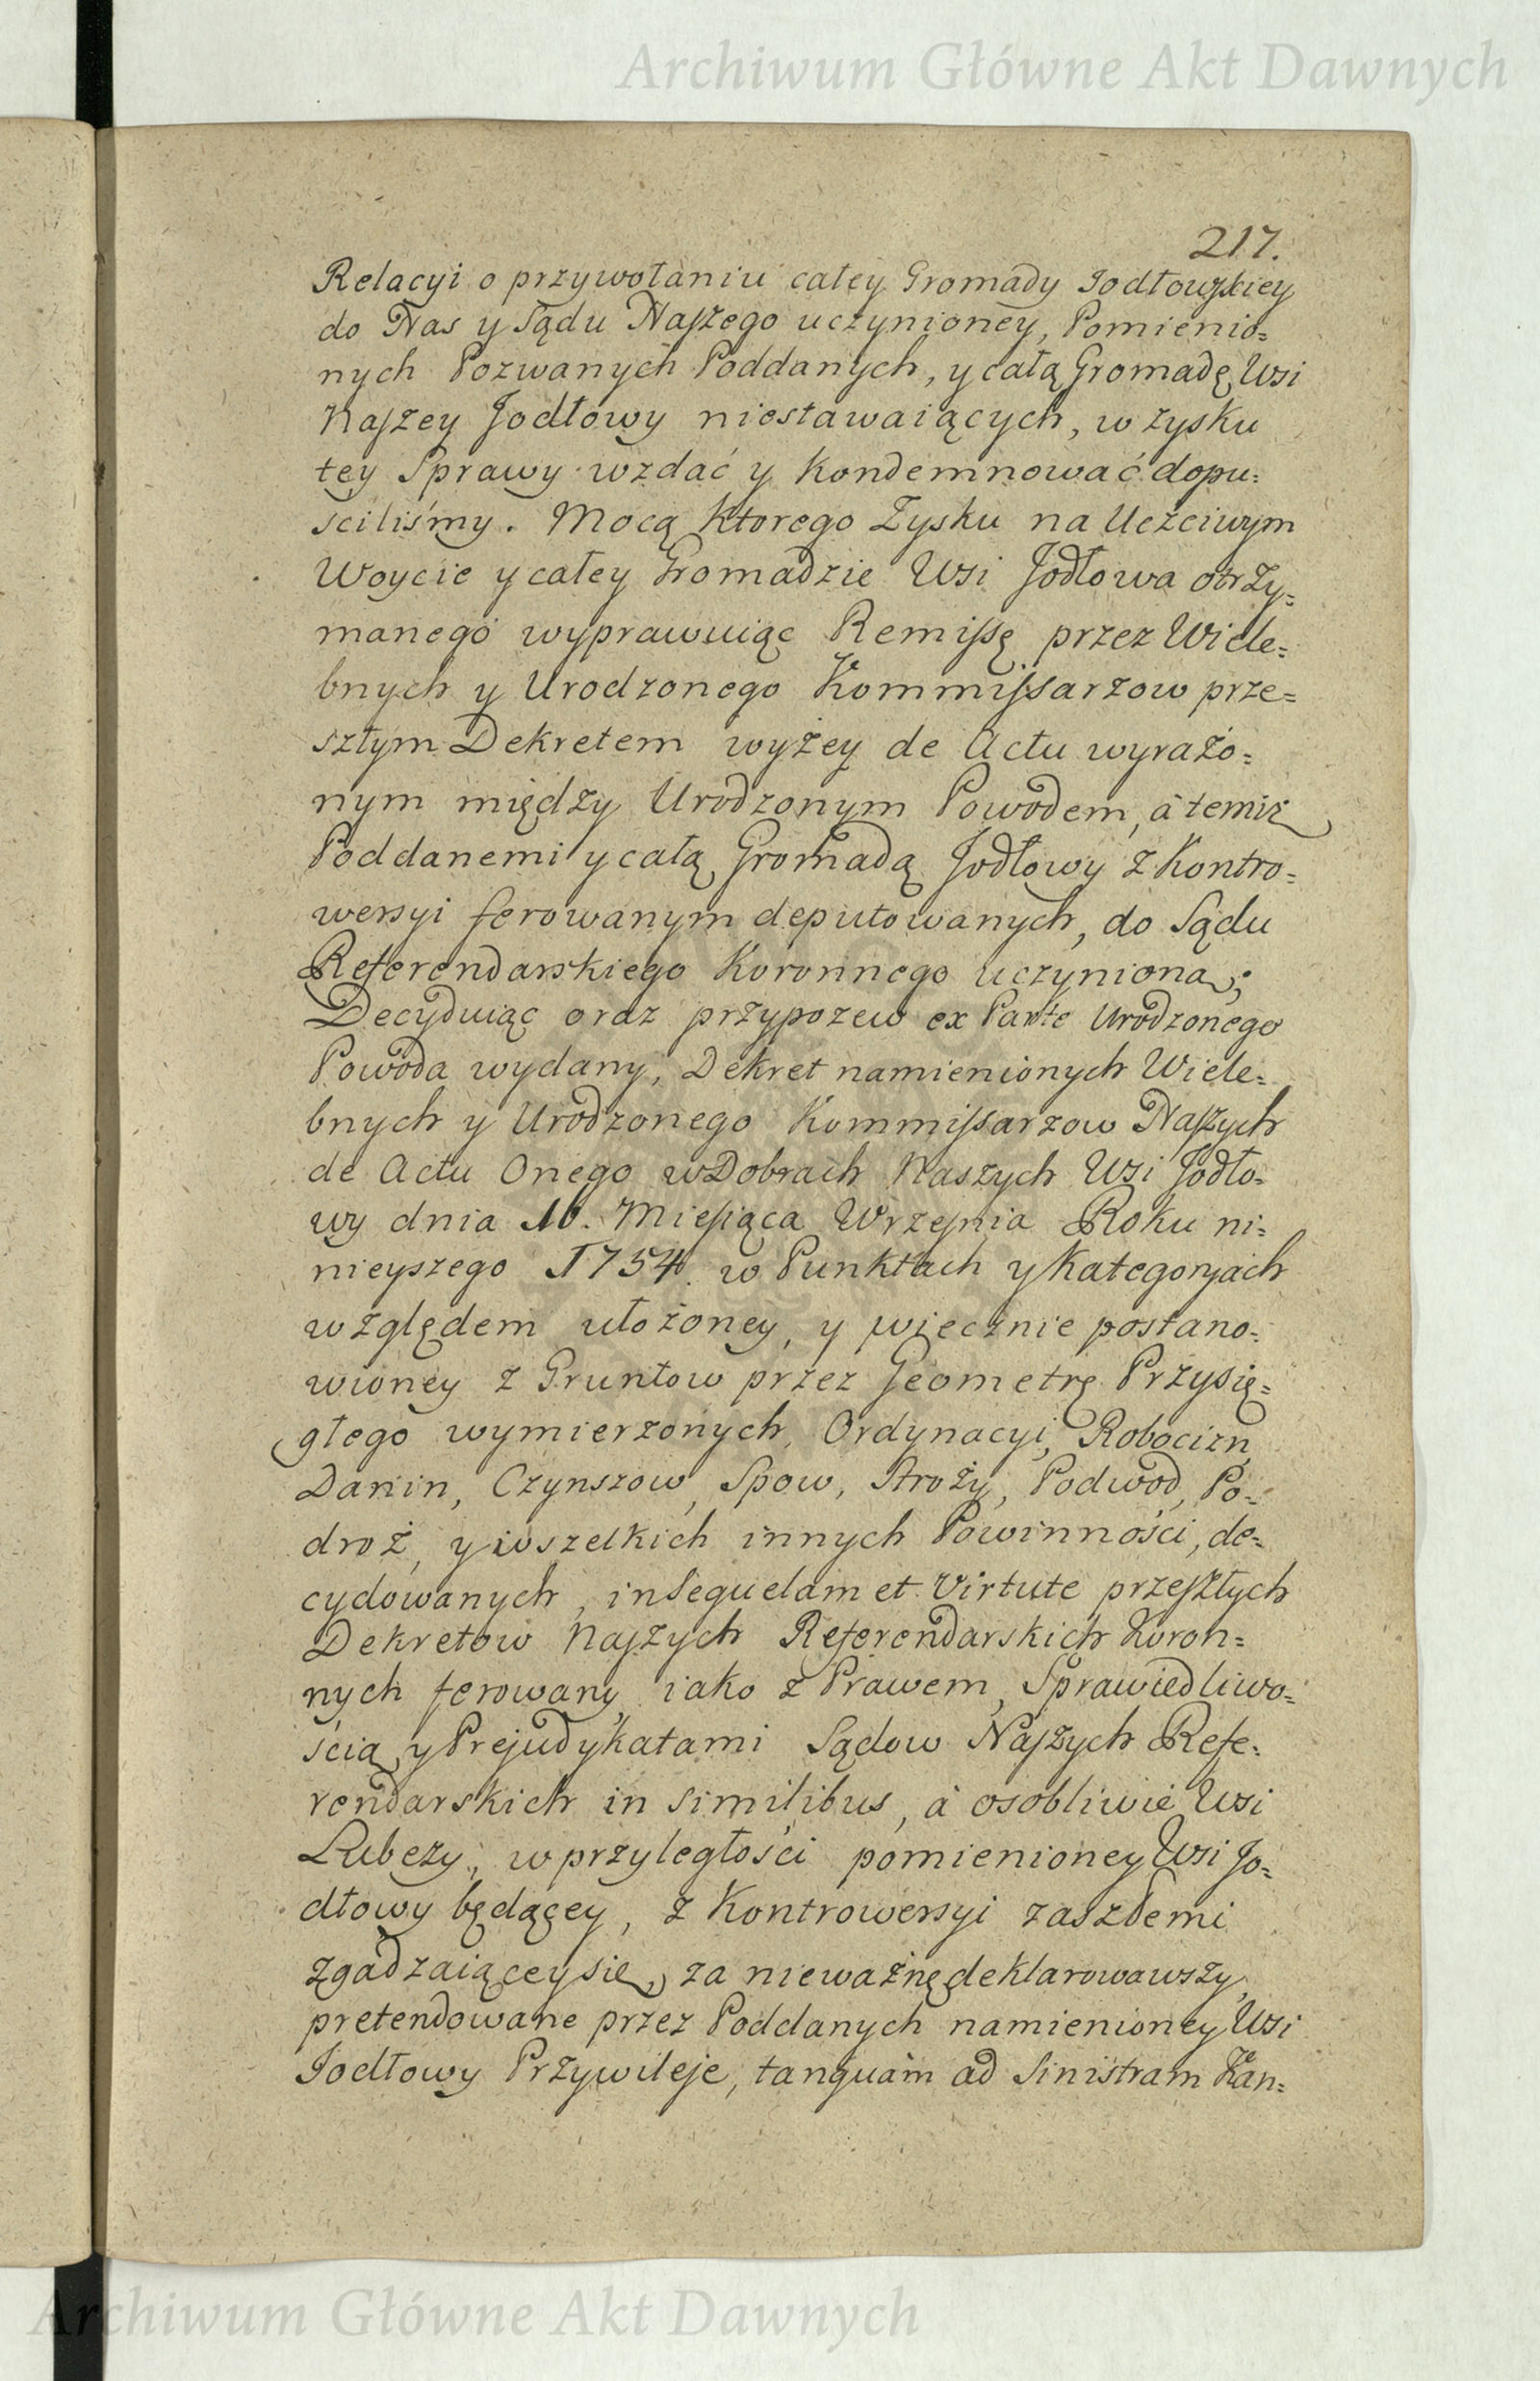 Archiwum Główne Akt Dawnych
217.
Relacyi o przywołaniu całey Gromady Jodłowskiey
do Nas y Sądu Naszego uczynioney, Pomienio=
nych Pozwanych Poddanych, y całą Gromadę Wsi
Naszey Jodłowy niestawaiących, w zysku
tey Sprawy wzdać y kondemnować dopu=
sciliśmy. Mocą ktorego Zysku na Uczciwym
Woycie y całey Gromadzie Wsi Jodłowa otrzy=
manego wyprawuiąc Remissę przez Wiele=
bnych y Urodzonego Kommissarzow prze=
szłym Dekretem wyżey de Actu wyrażo=
nym między Urodzonym Powodem, à temiż
Poddanemi y całą Gromadą Jodłowy z Kontro=
wersyi ferowanym deputowanych, do Sądu
Referendarskiego Koronnego uczyniona;
Decyduiąc oraz przypozew ex Parte Urodzonego
Powoda wydany, Dekret namienionych Wiele=
bnych y Urodzonego Kommissarzow Naszych
de Actu Onego w Dobrach Naszych Wsi Jodło=
wy dnia 10. Miesiąca Wrzesnia Roku ni=
nieyszego 1754. w Punktach y Kategoryach
względem ułożoney, y wiecznie postano=
wioney z Gruntow przez Geometrę Przysię=
głego wymierzonych, Ordynacyi, Robocizn
Danin, Czynszow, Spow, Stroży, Podwod, Po=
droż, y wszelkich innych Powinności, de=
cydowanych, in Sequelam et Virtute przeszłych
Dekretow Naszych Referendarskich Koron=
nych ferowany, iako z Prawem, Sprawiedliwo=
ścią y Prejudykatami Sądow Naszych Refe=
rendarskich in Similibus, à osobliwie Wsi
Lubczy, w przyległości pomienioney Wsi Jo=
dłowy będącey, z Kontrowersyi zaszłemi
zgadzaiącey się, za nieważnę deklarowawszy,
pretendowane przez Poddanych namienioney Wsi
Jodłowy Przywileje, tanquam ad Sinistram Kan=
Archiwum Główne Akt Dawnych